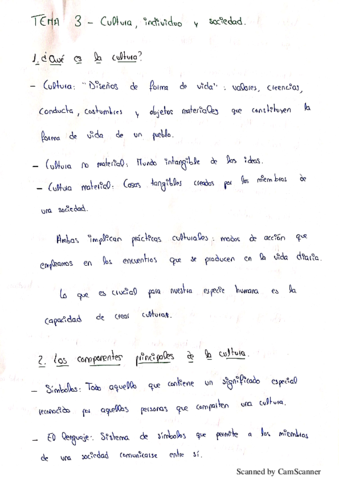 TEMA 3 - Cultura, individuo y sociedad.
1. ¿Qué es la cultura?
- Cultura: "Diseños de forma de vida": valores, creencias,
conducta, costumbres y objetos materiales que constituyen la
forma de vida de un pueblo.
- Cultura no material: Mundo intangible de las ideas.
- Cultura material: Cosas tangibles creadas por los miembros de
una sociedad.
Ambas implican prácticas culturales: modos de acción que
empleamos en los encuentros que se producen en la vida diaria.
Lo que es crucial para nuestra especie humana es la
capacidad de crear culturas.
2. Los componentes principales de la cultura.
- Símbolos: Todo aquello que contiene un significado especial
reconocido por aquellas personas que comparten una cultura.
- El lenguaje: Sistema de símbolos que permite a los miembros
de una sociedad comunicarse entre sí.
Scanned by CamScanner